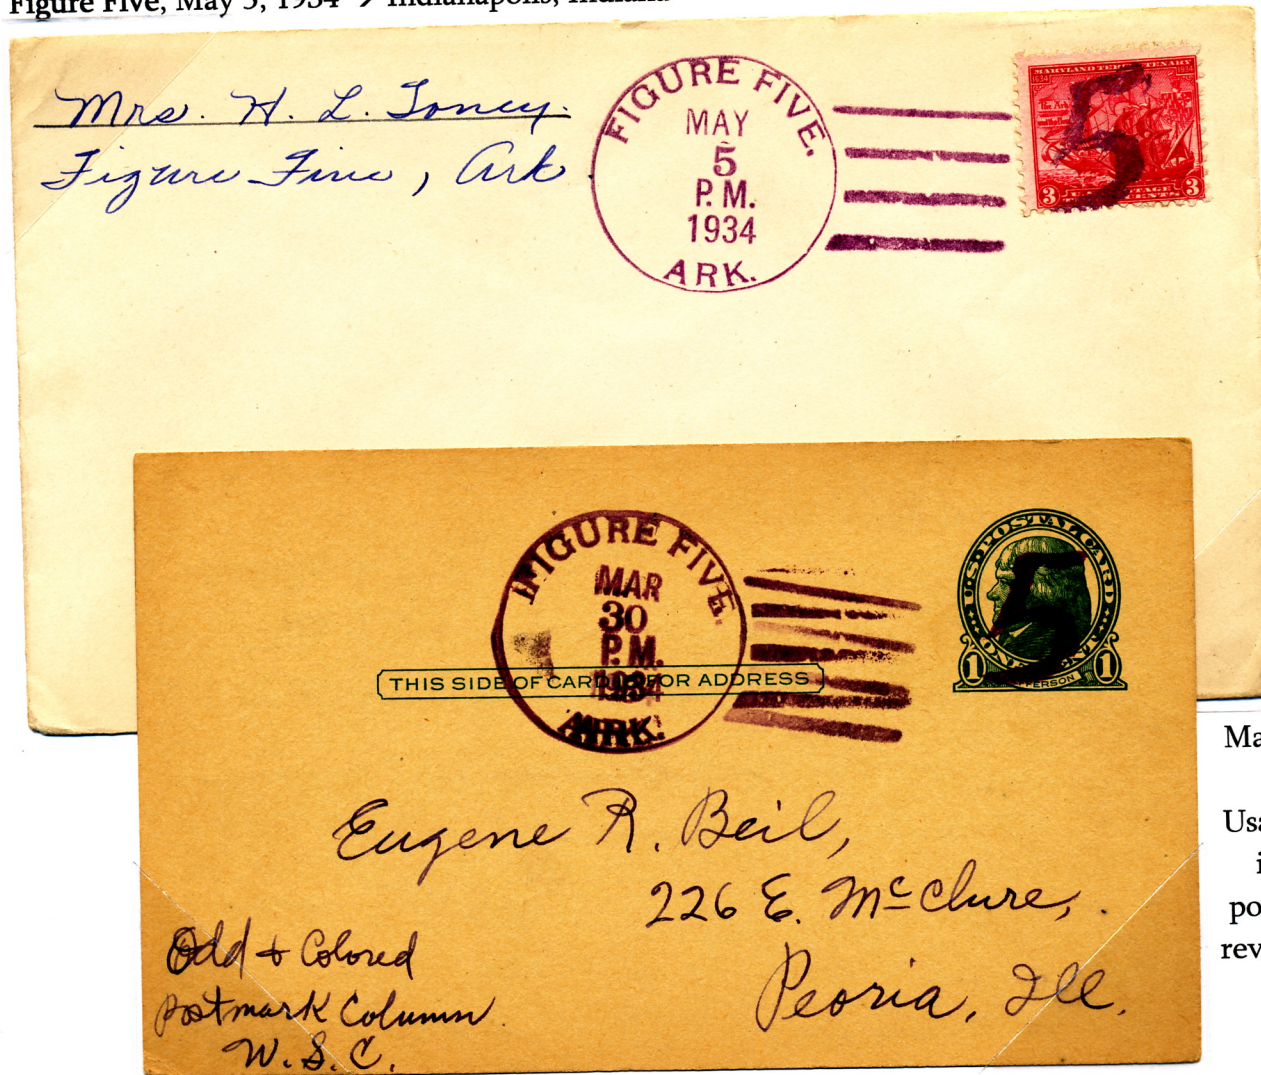 Figure Five, May 5, 1934 → Indianapolis, Indiana
Mrs. H. L. Toney.
Figure Five, Ark
FIGURE FIVE.
MAY
5
P.M.
1934
ARK.
MARYLAND TERCENTENARY
1634 1934
The Ark
3 3
5
FIGURE FIVE.
MAR
30
P.M.
1934
ARK.
THIS SIDE OF CARD IS FOR ADDRESS
U.S. POSTAL CARD
ONE CENT
1 1
JEFFERSON
5
Eugene R. Beil,
226 E. McClure,
Peoria, Ill.
Odd + Colored
Postmark Column
W.S.C.
Ma
Usa
i
po
rev